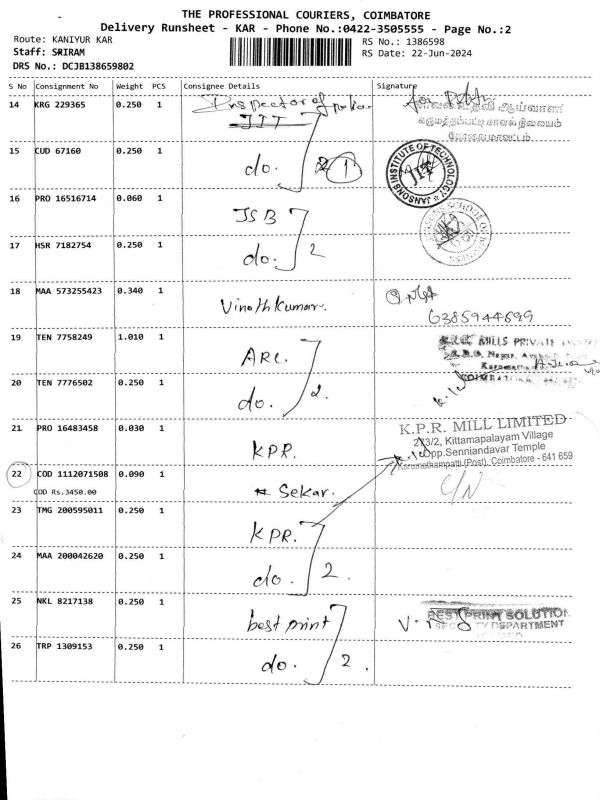 THE PROFESSIONAL COURIERS, COIMBATORE
Delivery Runsheet - KAR - Phone No.:0422-3505555 - Page No.:2
Route: KANIYUR KAR
RS No.: 1386598
Staff: SRIRAM
RS Date: 22-Jun-2024
DRS No.: DCJB138659802
S No Consignment No Weight PCS Consignee Details Signature
14 KRG 229365 0.250 1 Inspector of
JIT
காவல் உதவி ஆய்வாளர்
கருமத்தம்பட்டி காவல் நிலையம்
கோவை மாவட்டம்
15 CUD 67160 0.250 1 do. 1
JANSONS INSTITUTE OF TECHNOLOGY
JIT
16 PRO 16516714 0.060 1 JSB
SCHOOL OF BUSINESS
17 HSR 7182754 0.250 1 do. 2
18 MAA 573255423 0.340 1 Vinothkumar.
6385944699
19 TEN 7758249 1.010 1 ARC.
MILLS PRIVATE
Nagar,
COIMBATORE
20 TEN 7776502 0.250 1 do. 2.
21 PRO 16483458 0.030 1 KPR.
K.P.R. MILL LIMITED
273/2, Kittamapalayam Village
Opp.Senniandavar Temple
Karumathampatti (Post), Coimbatore - 641 659
22 COD 1112071508 0.090 1 Sekar.
COD Rs.3450.00
C/N
23 TMG 200595011 0.250 1 KPR.
24 MAA 200042620 0.250 1 do. 2.
25 NKL 8217138 0.250 1 best print
BEST PRINT SOLUTION
SECURITY DEPARTMENT
26 TRP 1309153 0.250 1 do. 2.